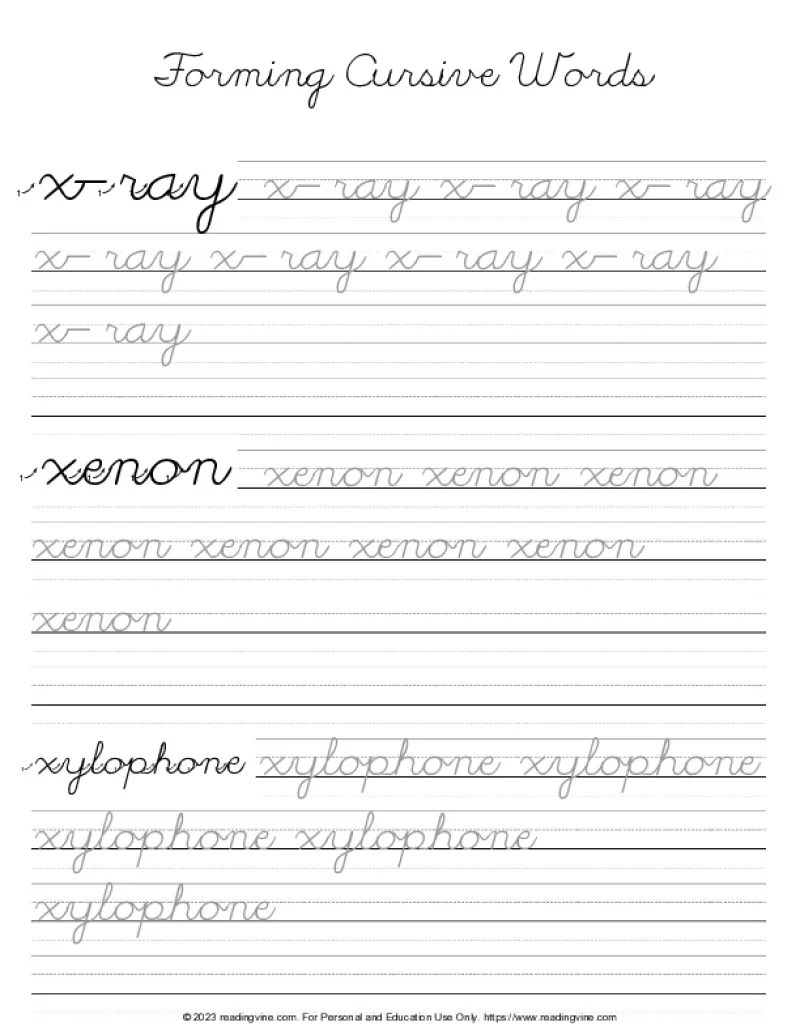 Forming Cursive Words
x-ray x-ray x-ray x-ray
x-ray x-ray x-ray x-ray
x-ray
xenon xenon xenon xenon
xenon xenon xenon xenon
xenon
xylophone xylophone xylophone
xylophone xylophone
xylophone
© 2023 readingvine.com. For Personal and Education Use Only. https://www.readingvine.com